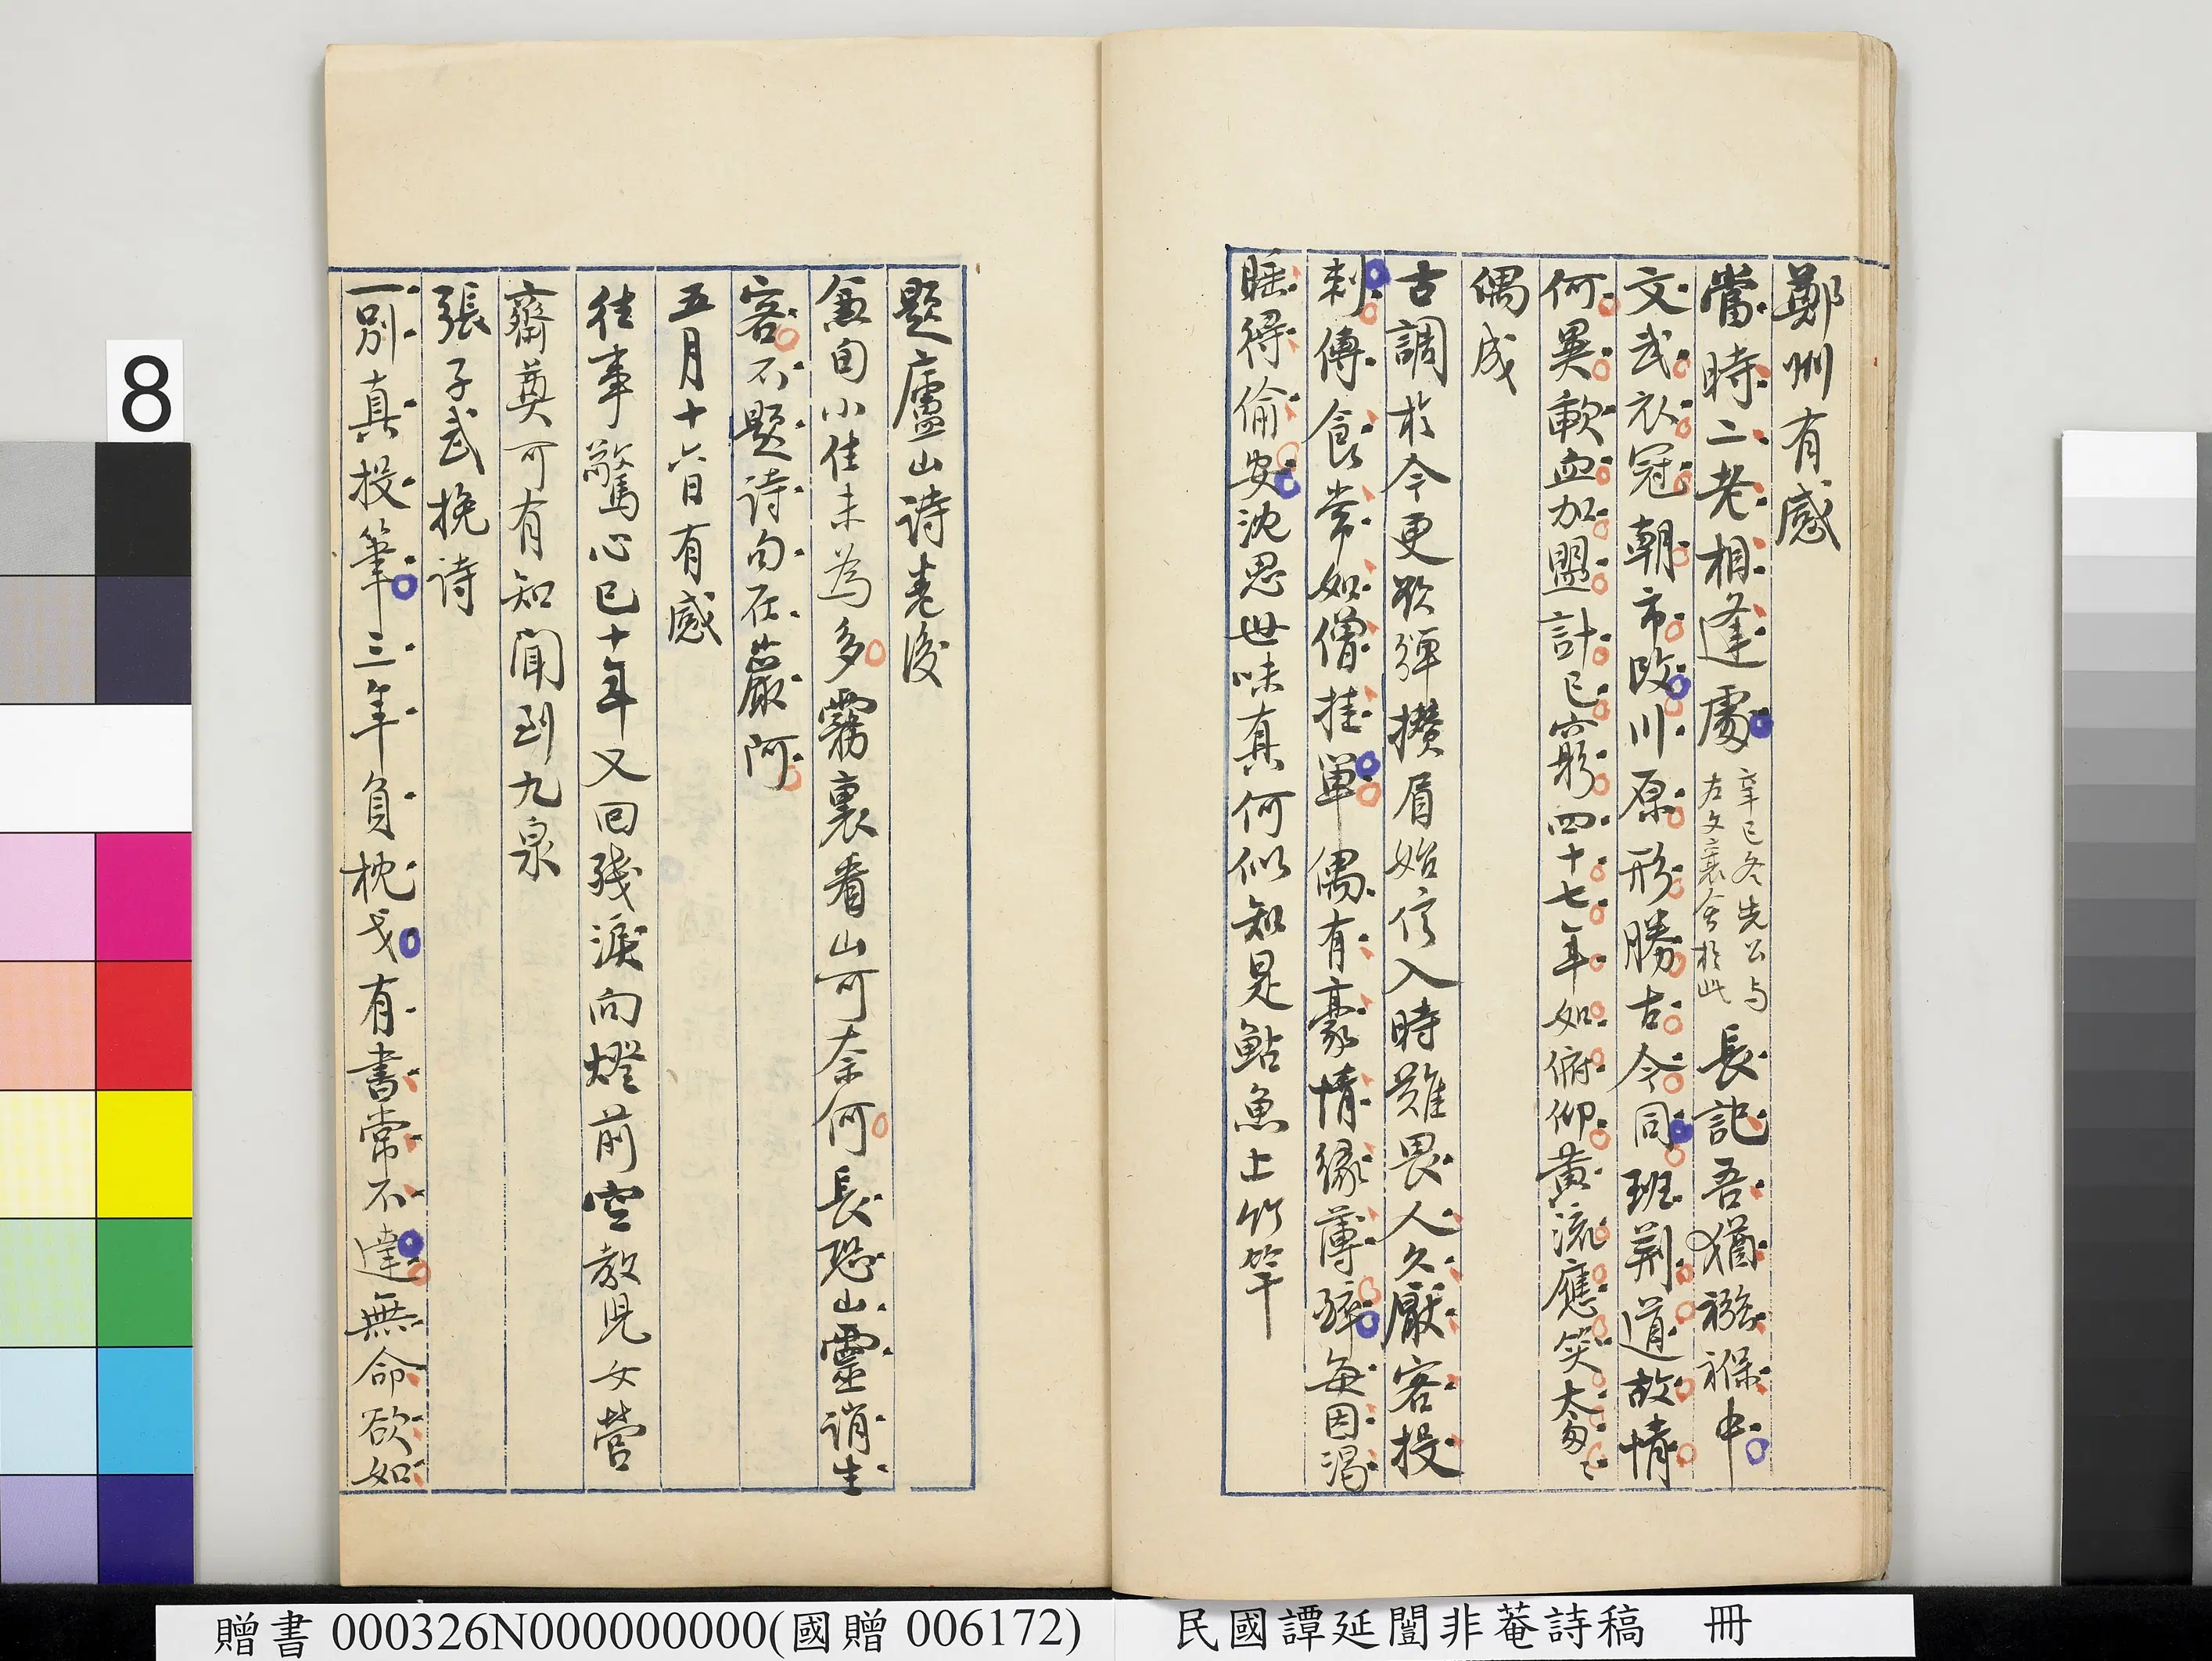 鄭州有感
當時二老相逢處
辛巳冬先公与
左文襄會於此
長記吾猶襁褓中
文武衣冠朝市改川原形勝古今同班荊道故情
何異歃血加盟計已窮四十七年如俯仰黃流應笑太匆〻
偶成
古調於今更欲彈攢眉始信入時難畏人久厭客投
刺傳食常如僧挂單偶有豪情緣薄醉每因渴
睡得偷安沈思世味真何似知是鮎魚上竹竿
題廬山詩卷後
兼旬小住未為多霧裏看山可奈何長恐山靈誚生
客不題詩句在巖阿
五月十六日有感
往事驚心已十年又回殘淚向燈前空教兒女營
齋奠可有知聞到九泉
張子武挽詩
一別真投筆三年負枕戈有書常不達無命欲如
8
贈書 000326N000000000(國贈 006172)
民國譚延闓非菴詩稿 冊